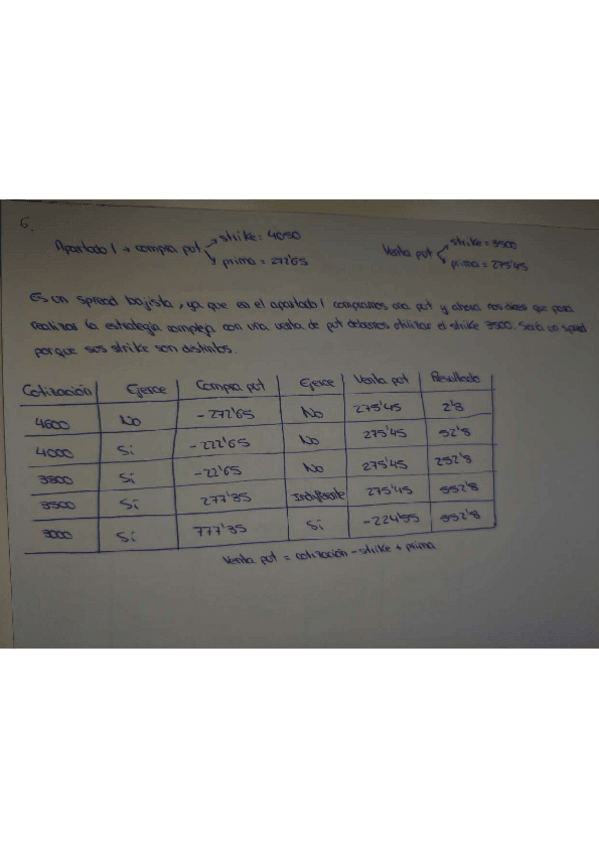 6.
Apartado 1 → compra put → strike = 4050
→ prima = 272'65
Venta put → strike = 3500
→ prima = 275'45
Es un spread bajista, ya que en el apartado 1 compramos una put y ahora nos dicen que para
realizar la estrategia compleja con una venta de put debemos utilizar el strike 3500. Será un spread
porque sus strike son distintos.
Cotización | Ejerce | Compra put | Ejerce | Venta put | Resultado
4600 | No | -272'65 | No | 275'45 | 2'8
4000 | Sí | -222'65 | No | 275'45 | 52'8
3800 | Sí | -22'65 | No | 275'45 | 252'8
3500 | Sí | 277'35 | Indiferente | 275'45 | 552'8
3000 | Sí | 777'35 | Sí | -224'55 | 552'8
Venta put = cotización - strike + prima